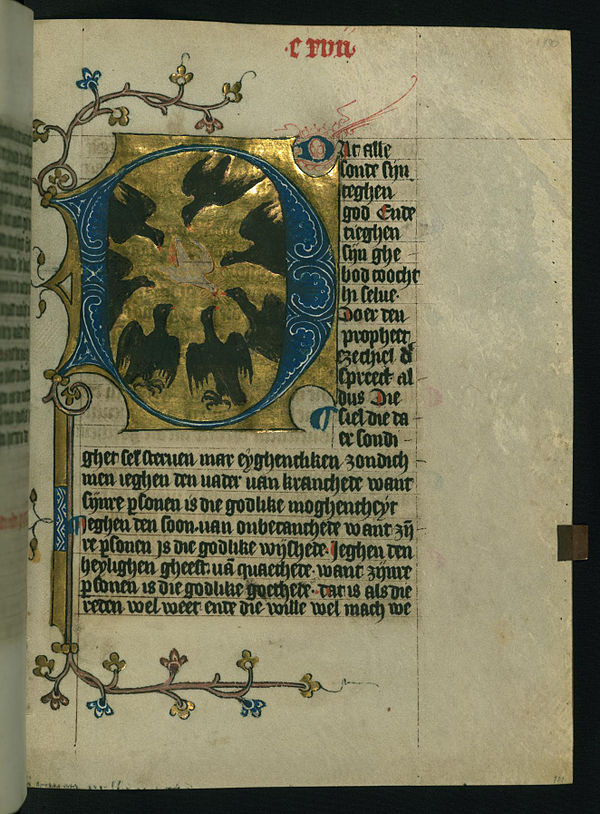 ·c xvii·
Oar alle
sonde sijn
teghen
god Ende
tieghen
sijn ghe
bod wocht
hi selue·
Doer den
propheet
ezechiel dʼ
spreect al
dus Die
siel die da
er sondi
ghet sel steruen mar eyghentliken zondich
men ieghen den uader uan kranchede want
sijnre ꝑsonen is die godlike moghentheyt
Jeghen den soon uan onbecanthede want zijn
re ꝑsonen js die godlike wijshede· Jeghen den
heylighen gheest uā quaethede want zijnre
ꝑsonen is die godlike goethede· dat is als die
reden wel weet ende die wille wel mach we